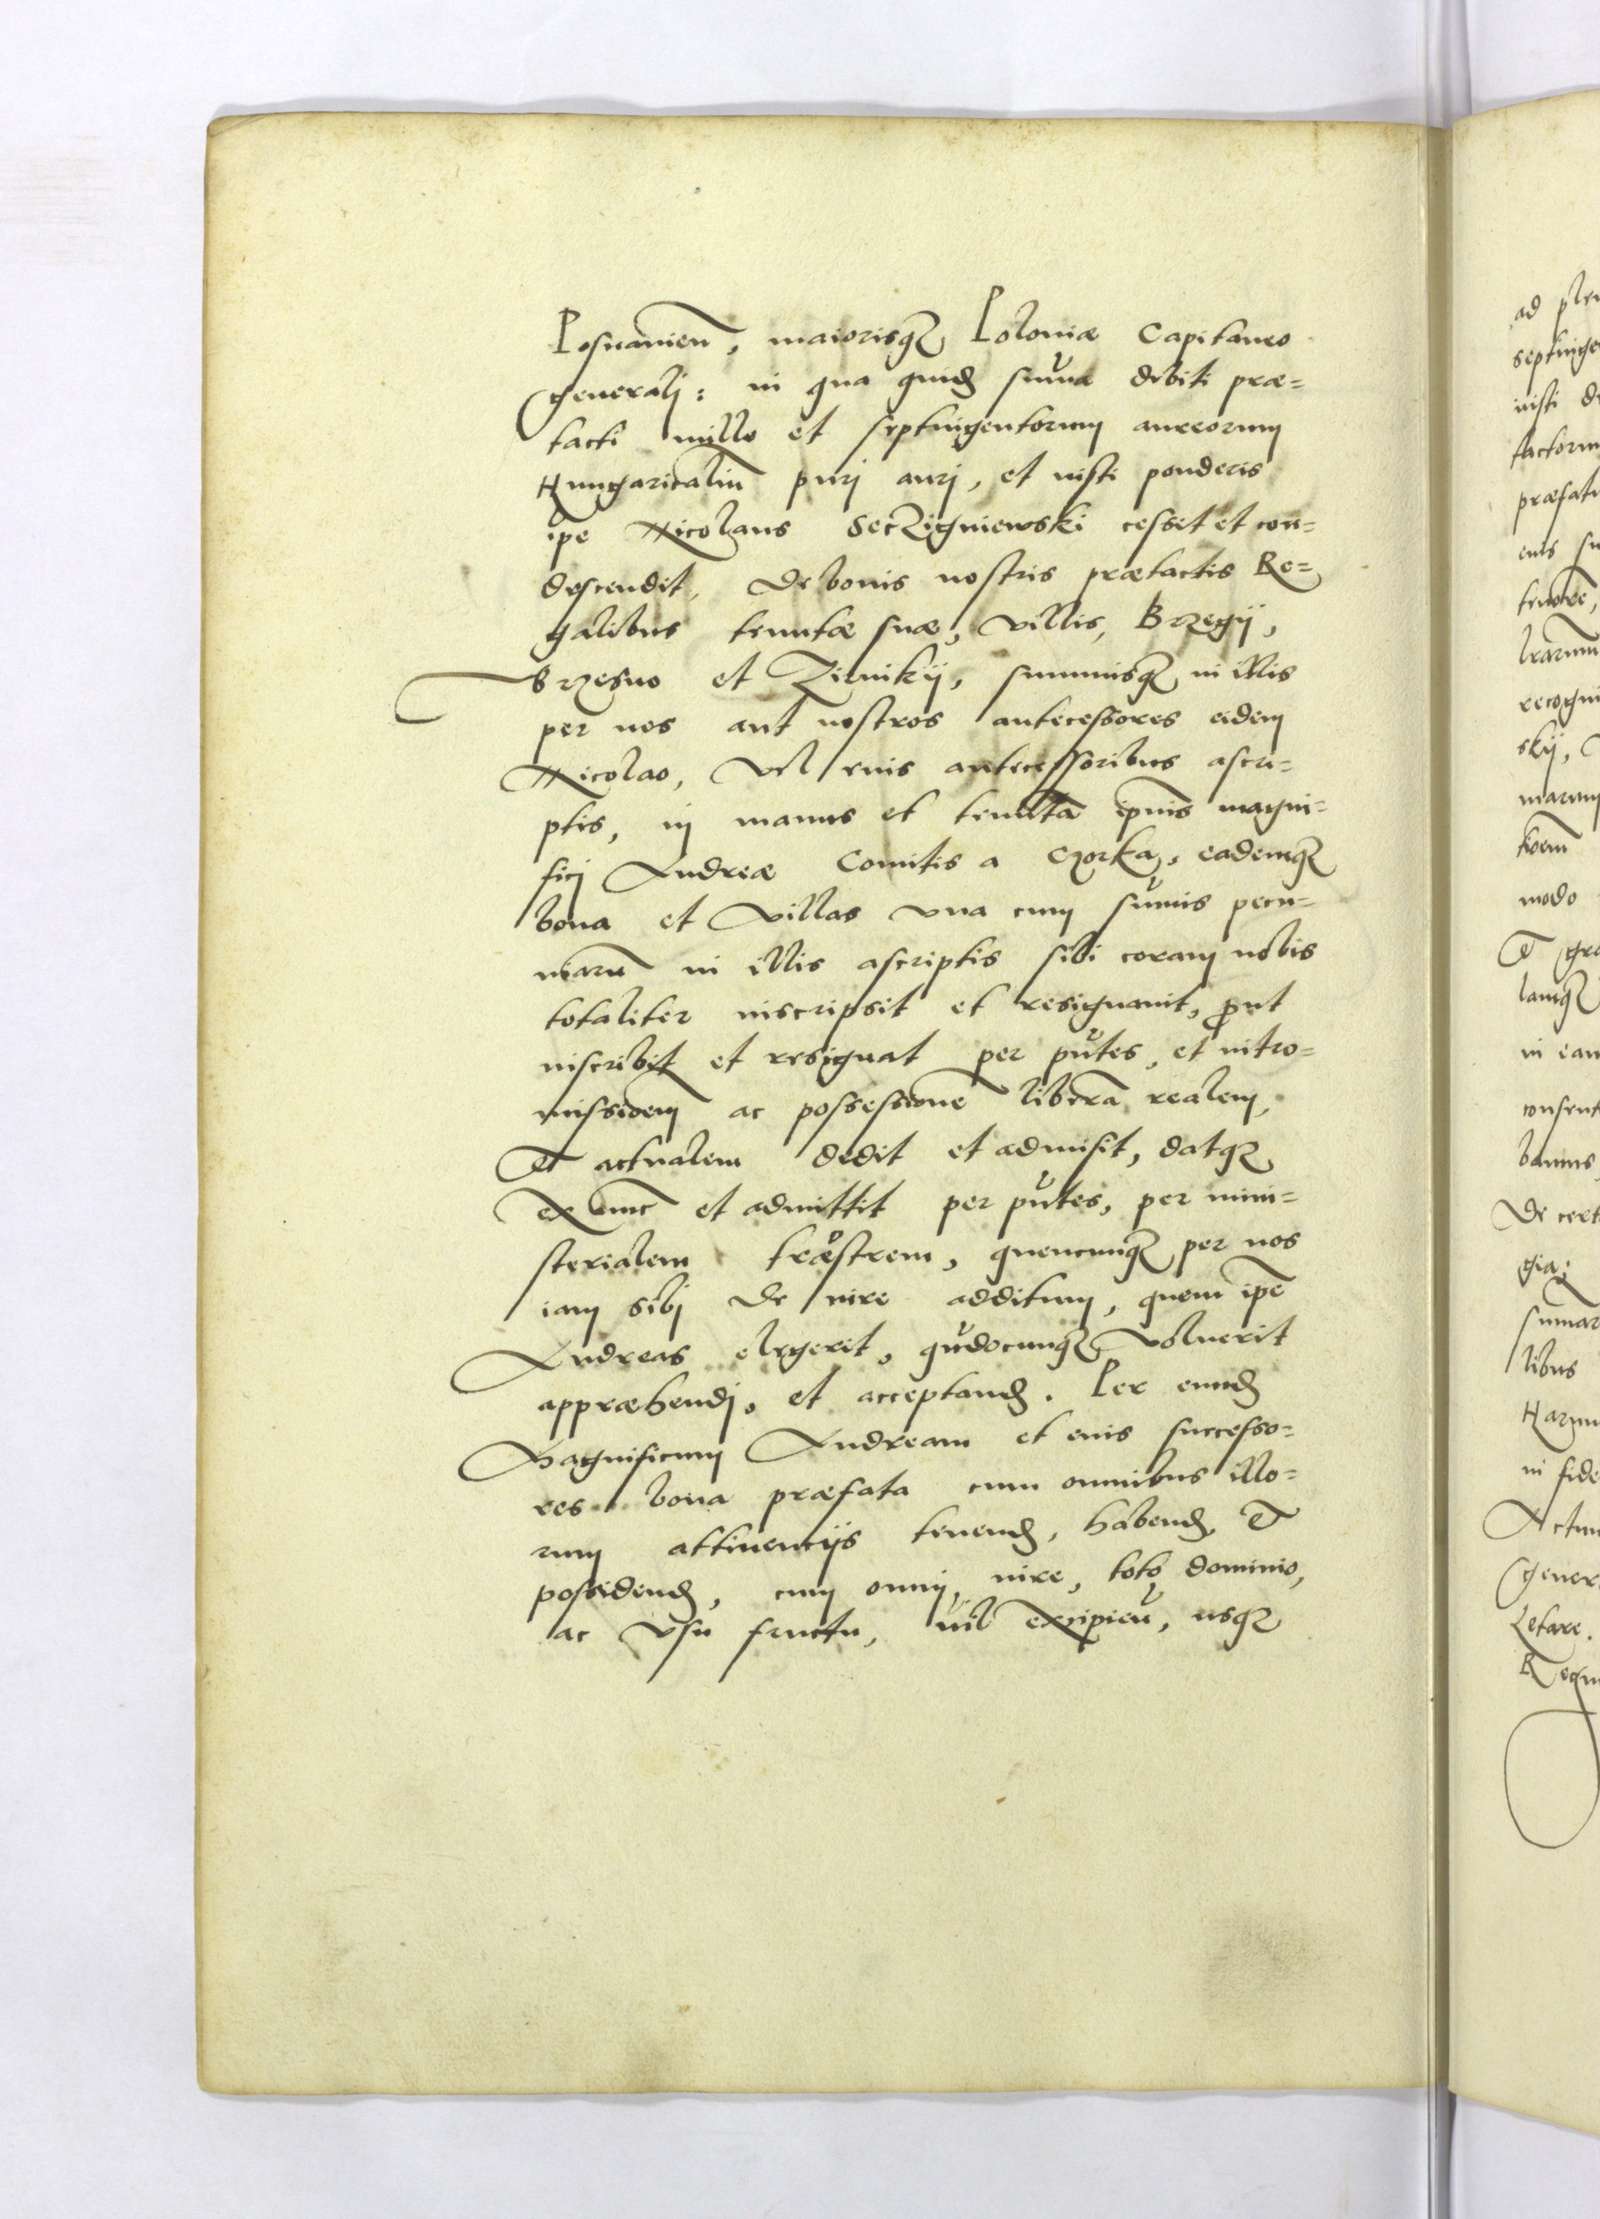 Posnanien̄, maiorisq₃ Poloniæ Capitaneo
Generalj: in qua quidē sum̄a debiti præ=
tacti mille et septuigentorum aureorum
Hungaricaliū purj aurj, et iusti ponderis
ipē Nicolaus Seczigniewski cesset et con=
descendit, de bonis nostris prætactis Re=
galibus tenutæ suæ, villis, Brzegij,
Brzesno et Zilnikij, summisq₃ in illis
per nos aut nostros antecessores eidem
Nicolao, vel euis antecessoribus ascri=
ptis, in manus et tenutā ipīus magni=
ficj Andreæ Comitis a Gorka, eademq₃
bona et villas vna cum sum̄is pecu=
niarū in illis ascriptis sibi coram nobis
totaliter inscripsit et resignauit, prout
inscribit et resignat per pn̄tes, et intro=
missionem ac possessionē liberā realem,
Et actualem dedit et admisit, datq₃
ex tunc et admittit per pn̄tes, per mini=
sterialem træstrem, quencunq₃ per nos
iam sibj de iure additum, quem ipē
Andreas elegerit, qn̄docunq₃ voluerit
appræhendj, et acceptand. Per eund
Magnificum Andream et euis successo=
res bona præfata cum omnibus illo=
rum attinencijs tenend, habend, Et
possidend, cum omnj, iure, toto, dominio,
ac vsu fructu, nil excipien̄, usq₃
ad ple
septinge
iusti
factorum
præfat
recogni
skij,
marum
modo
Et gra
in eam
consent
De cert
gia:
libus
Harum
in fide
Actum
Genera
Letare.
Regni